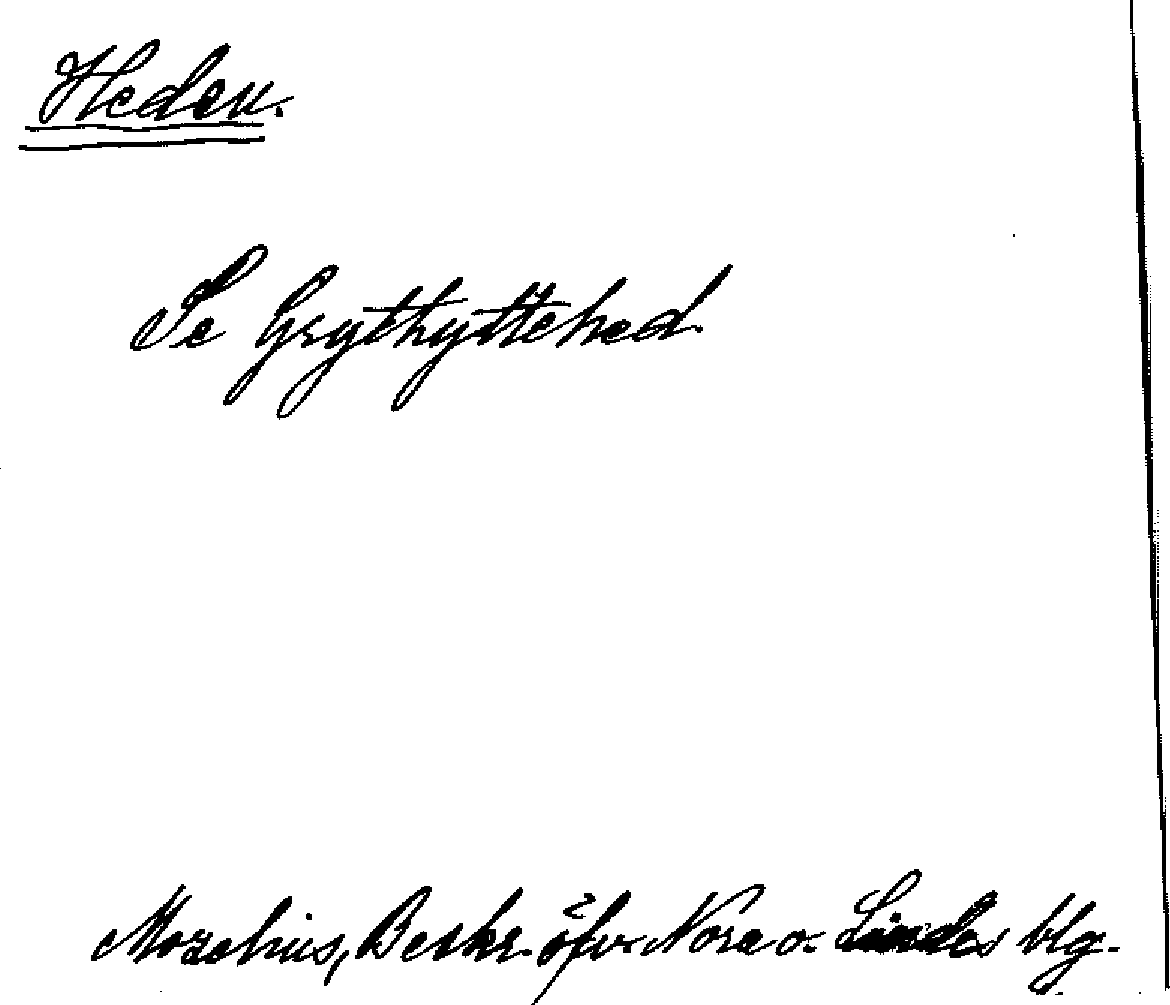 Heden.
Se Grythyttehed
Morelius, Beskr. öfv. Nora o. Lindes blg.